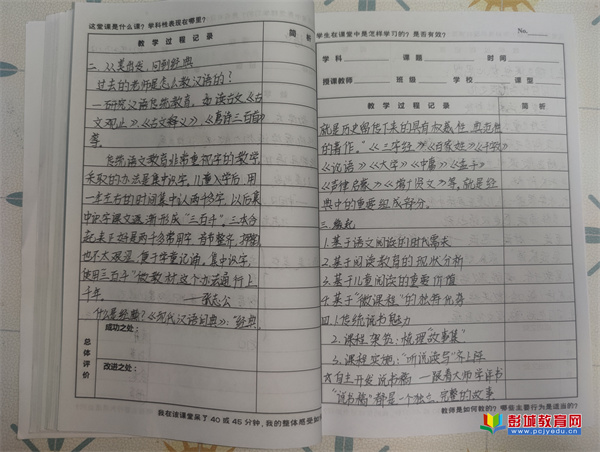 这堂课是什么课？学科性表现在哪里？
教学过程记录
简析
二、从其出发，回到经典
过去的老师是怎么教汉语的？
—研究汉语传统教育，曲 读古文《古
文观止》、《古文释义》、《唐诗三百首》
等。
传统语文教育非常重视字的教学，
采取的办法是集中识字，儿童入学后，用
一年左右的时间集中认两千多字，以后集
中识字课文逐渐形成"三百千"。三本合
起来正好是两千多常用字，音节整齐，押韵
也不太艰涩，便于学童记诵。集中识字，
使用三百千"做教材，这个办法通行上
千年。
——张志公
什么是经典？《现代汉语词典》："经典，
总体评价
成功之处：
改进之处：
我在这课堂呆了40或45分钟，我的整体感受如
学生在课堂中是怎样学习的？是否有效？
No.
学科 课题 时间
授课教师 班级 学校 课型
教学过程记录
简析
就是历史留存下来的具有权威性、典范性
的著作。"《三字经》《百家姓》《千字文》
《论语》《大学》《中庸》《孟子》
《声律启蒙》《增广贤文》等，就是经
典中的重要组成部分。
三、缘起
1.基于语文阅读的时代需求
2.基于阅读教育的现状分析
3.基于儿童阅读的重要价值
4.基于"微课程"的独特优势
四.1.传统说书魅力
2.课程架势：梳理"故事集"
3.课程实施："听说读写"齐上阵
自主开发说书稿—跟着大师学评书
"说书稿"都是一个独立、完整的故事
教师是如何教的？哪些主要行为是适当的？
彭城教育网
www.pcjyedu.cn